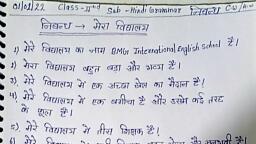 01/02/22 Class-IInd Sub-Hindi Grammar निबन्ध C.W/H.W
निबन्ध → मेरा विद्यालय
1) मेरे विद्यालय का नाम BMG International English School है।
2) मेरा विद्यालय बहुत बड़ा और भव्य है।
3) मेरे विद्यालय में एक अच्छा खेल का मैदान है।
4) मेरे विद्यालय में एक बगीचा है और उसमें कई तरह के फूल है।
5) मेरे विद्यालय में तीस शिक्षक है।
6) मेरे विद्यालय